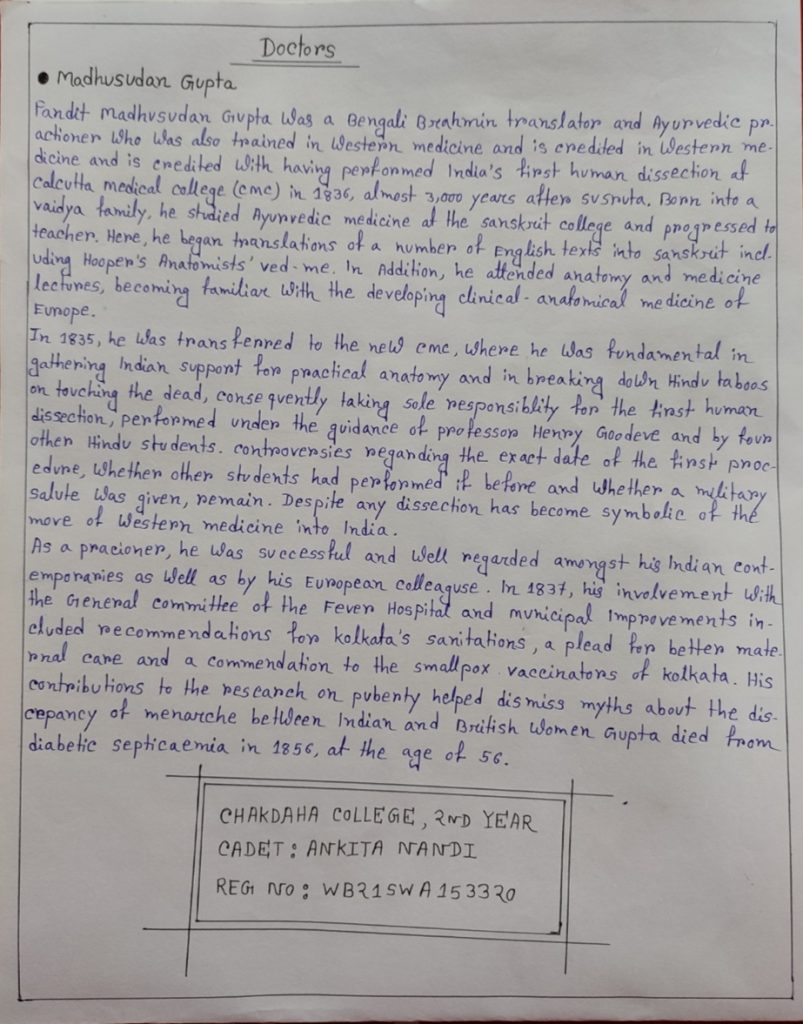 Doctors
• Madhusudan Gupta
Pandit Madhusudan Gupta was a Bengali Brahmin translator and Ayurvedic pr-
actioner who was also trained in Western medicine and is credited in Western me-
dicine and is credited with having performed India's first human dissection at
Calcutta medical college (CMC) in 1836, almost 3,000 years after susruta. Born into a
vaidya family, he studied Ayurvedic medicine at the sanskrit college and progressed to
teacher. Here, he began translations of a number of English texts into sanskrit incl-
uding Hooper's Anatomists' ved-me. In Addition, he attended anatomy and medicine
lectures, becoming familiar with the developing clinical-anatomical medicine of
Europe.
In 1835, he was transferred to the new cmc, where he was fundamental in
gathering Indian support for practical anatomy and in breaking down Hindu taboos
on touching the dead, consequently taking sole responsiblity for the first human
dissection, performed under the guidance of professor Henry Goodeve and by four
other Hindu students. controversies regarding the exact date of the first proc-
edure, whether other students had performed it before and whether a military
salute was given, remain. Despite any dissection has become symbolic of the
move of Western medicine into India.
As a pracioner, he was successful and well regarded amongst his Indian cont-
emporaries as well as by his European colleaguse. In 1837, his involvement with
the General committee of the Fever Hospital and municipal Improvements in-
cluded recommendations for kolkata's sanitations, a plead for better mate-
rnal care and a commendation to the smallpox vaccinators of kolkata. His
contributions to the research on puberty helped dismiss myths about the dis-
crepancy of menarche between Indian and British women Gupta died from
diabetic septicaemia in 1856, at the age of 56.
CHAKDAHA COLLEGE, 2ND YEAR
CADET: ANKITA NANDI
REG NO: WB21SWA153320